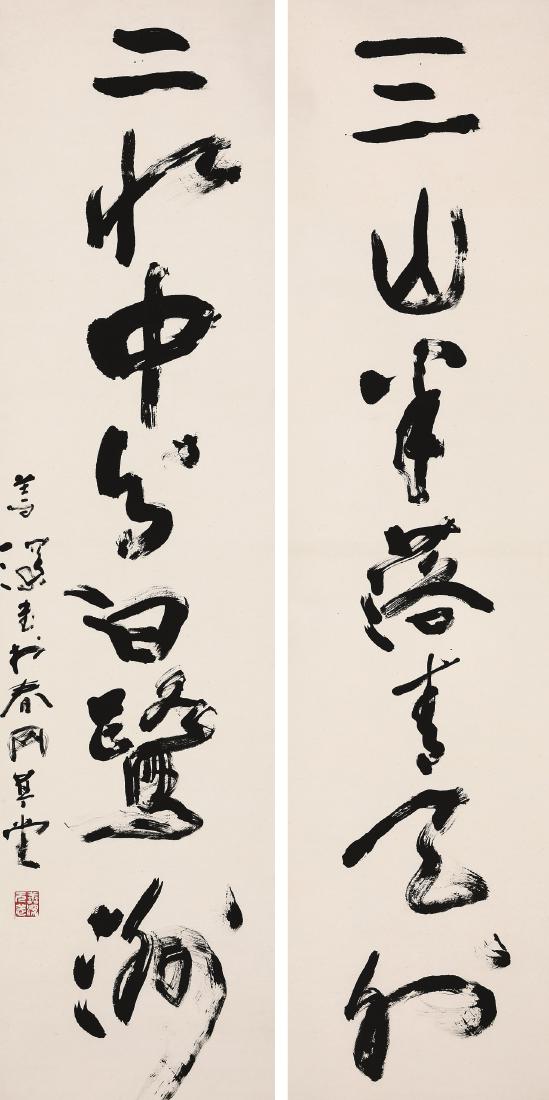 三山半落青天外
二水中分白鷺洲
善深書於春風草堂